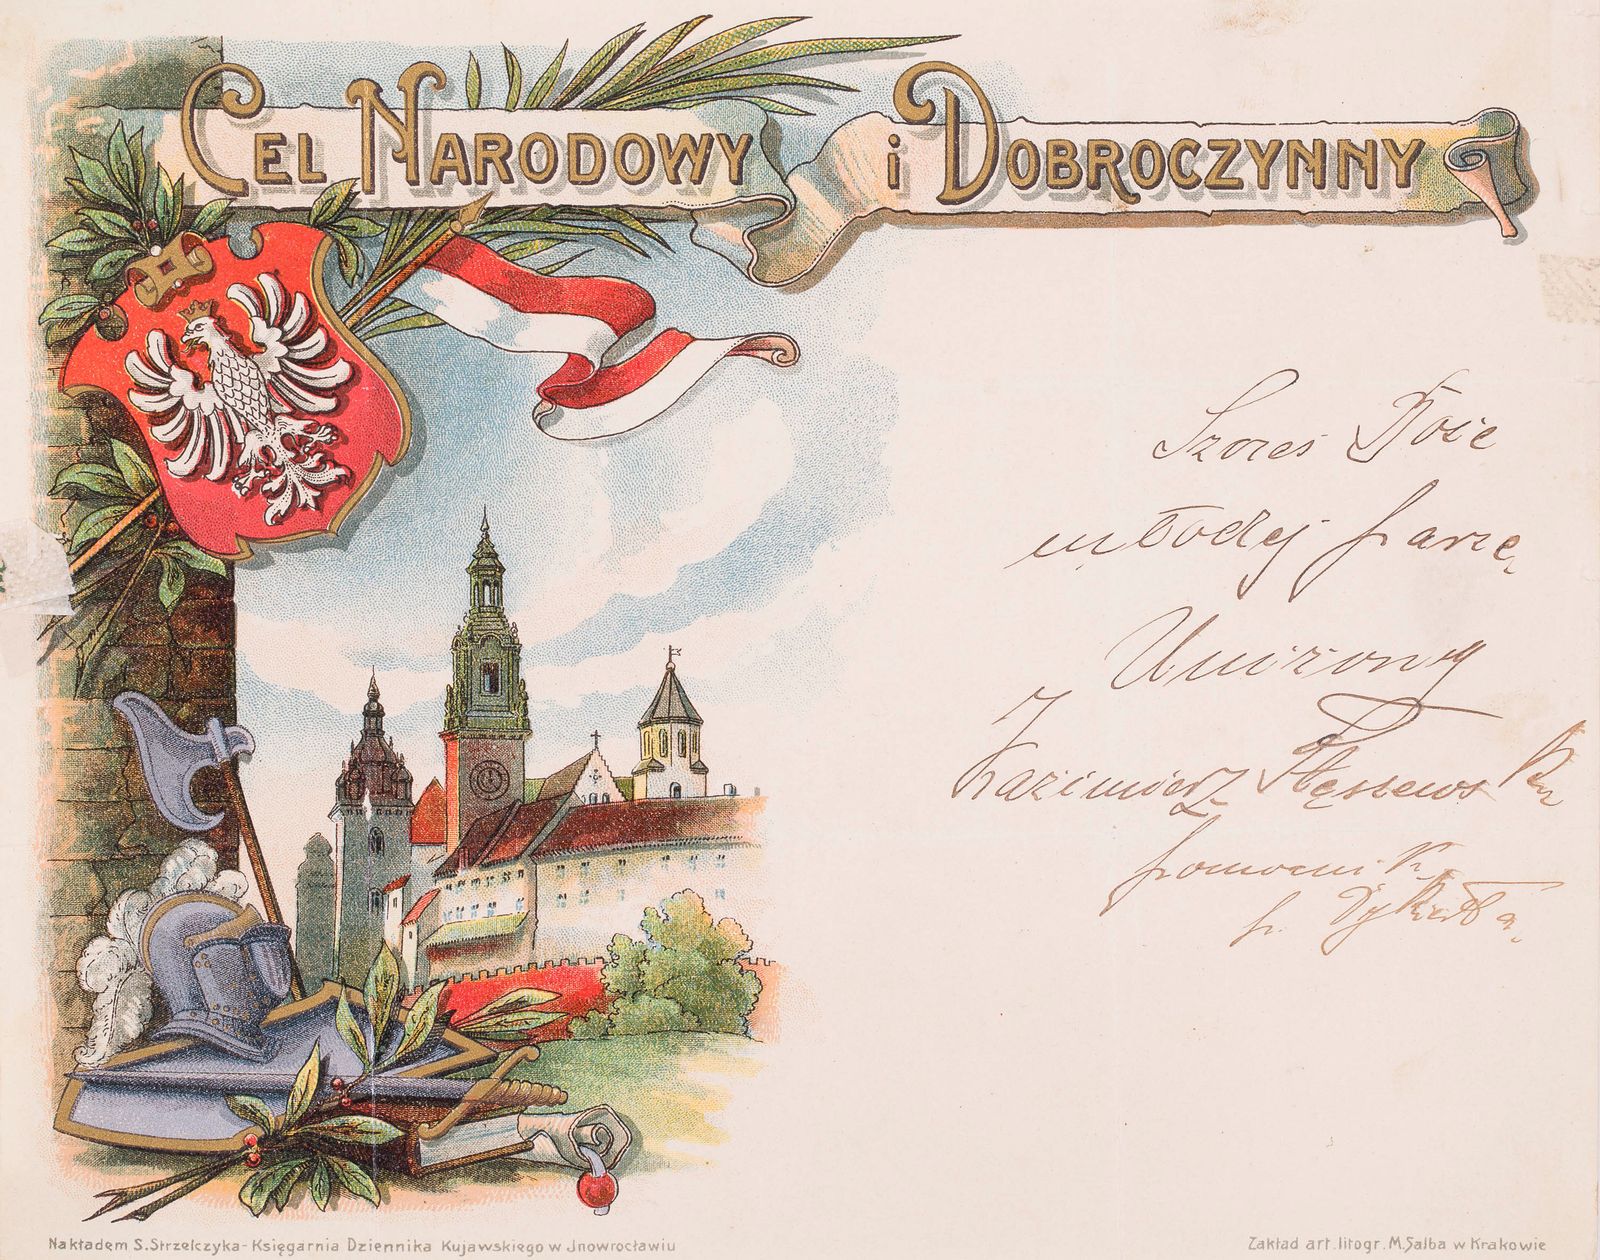 Cel Narodowy i Dobroczynny
Szczęś Boże
młodej parze
Uniżony
Kazimierz
pomocnik
p.
Nakładem S. Strzelczyka - Księgarnia Dziennika Kujawskiego w Jnowrocławiu
Zakład art. litogr. M. Salba w Krakowie